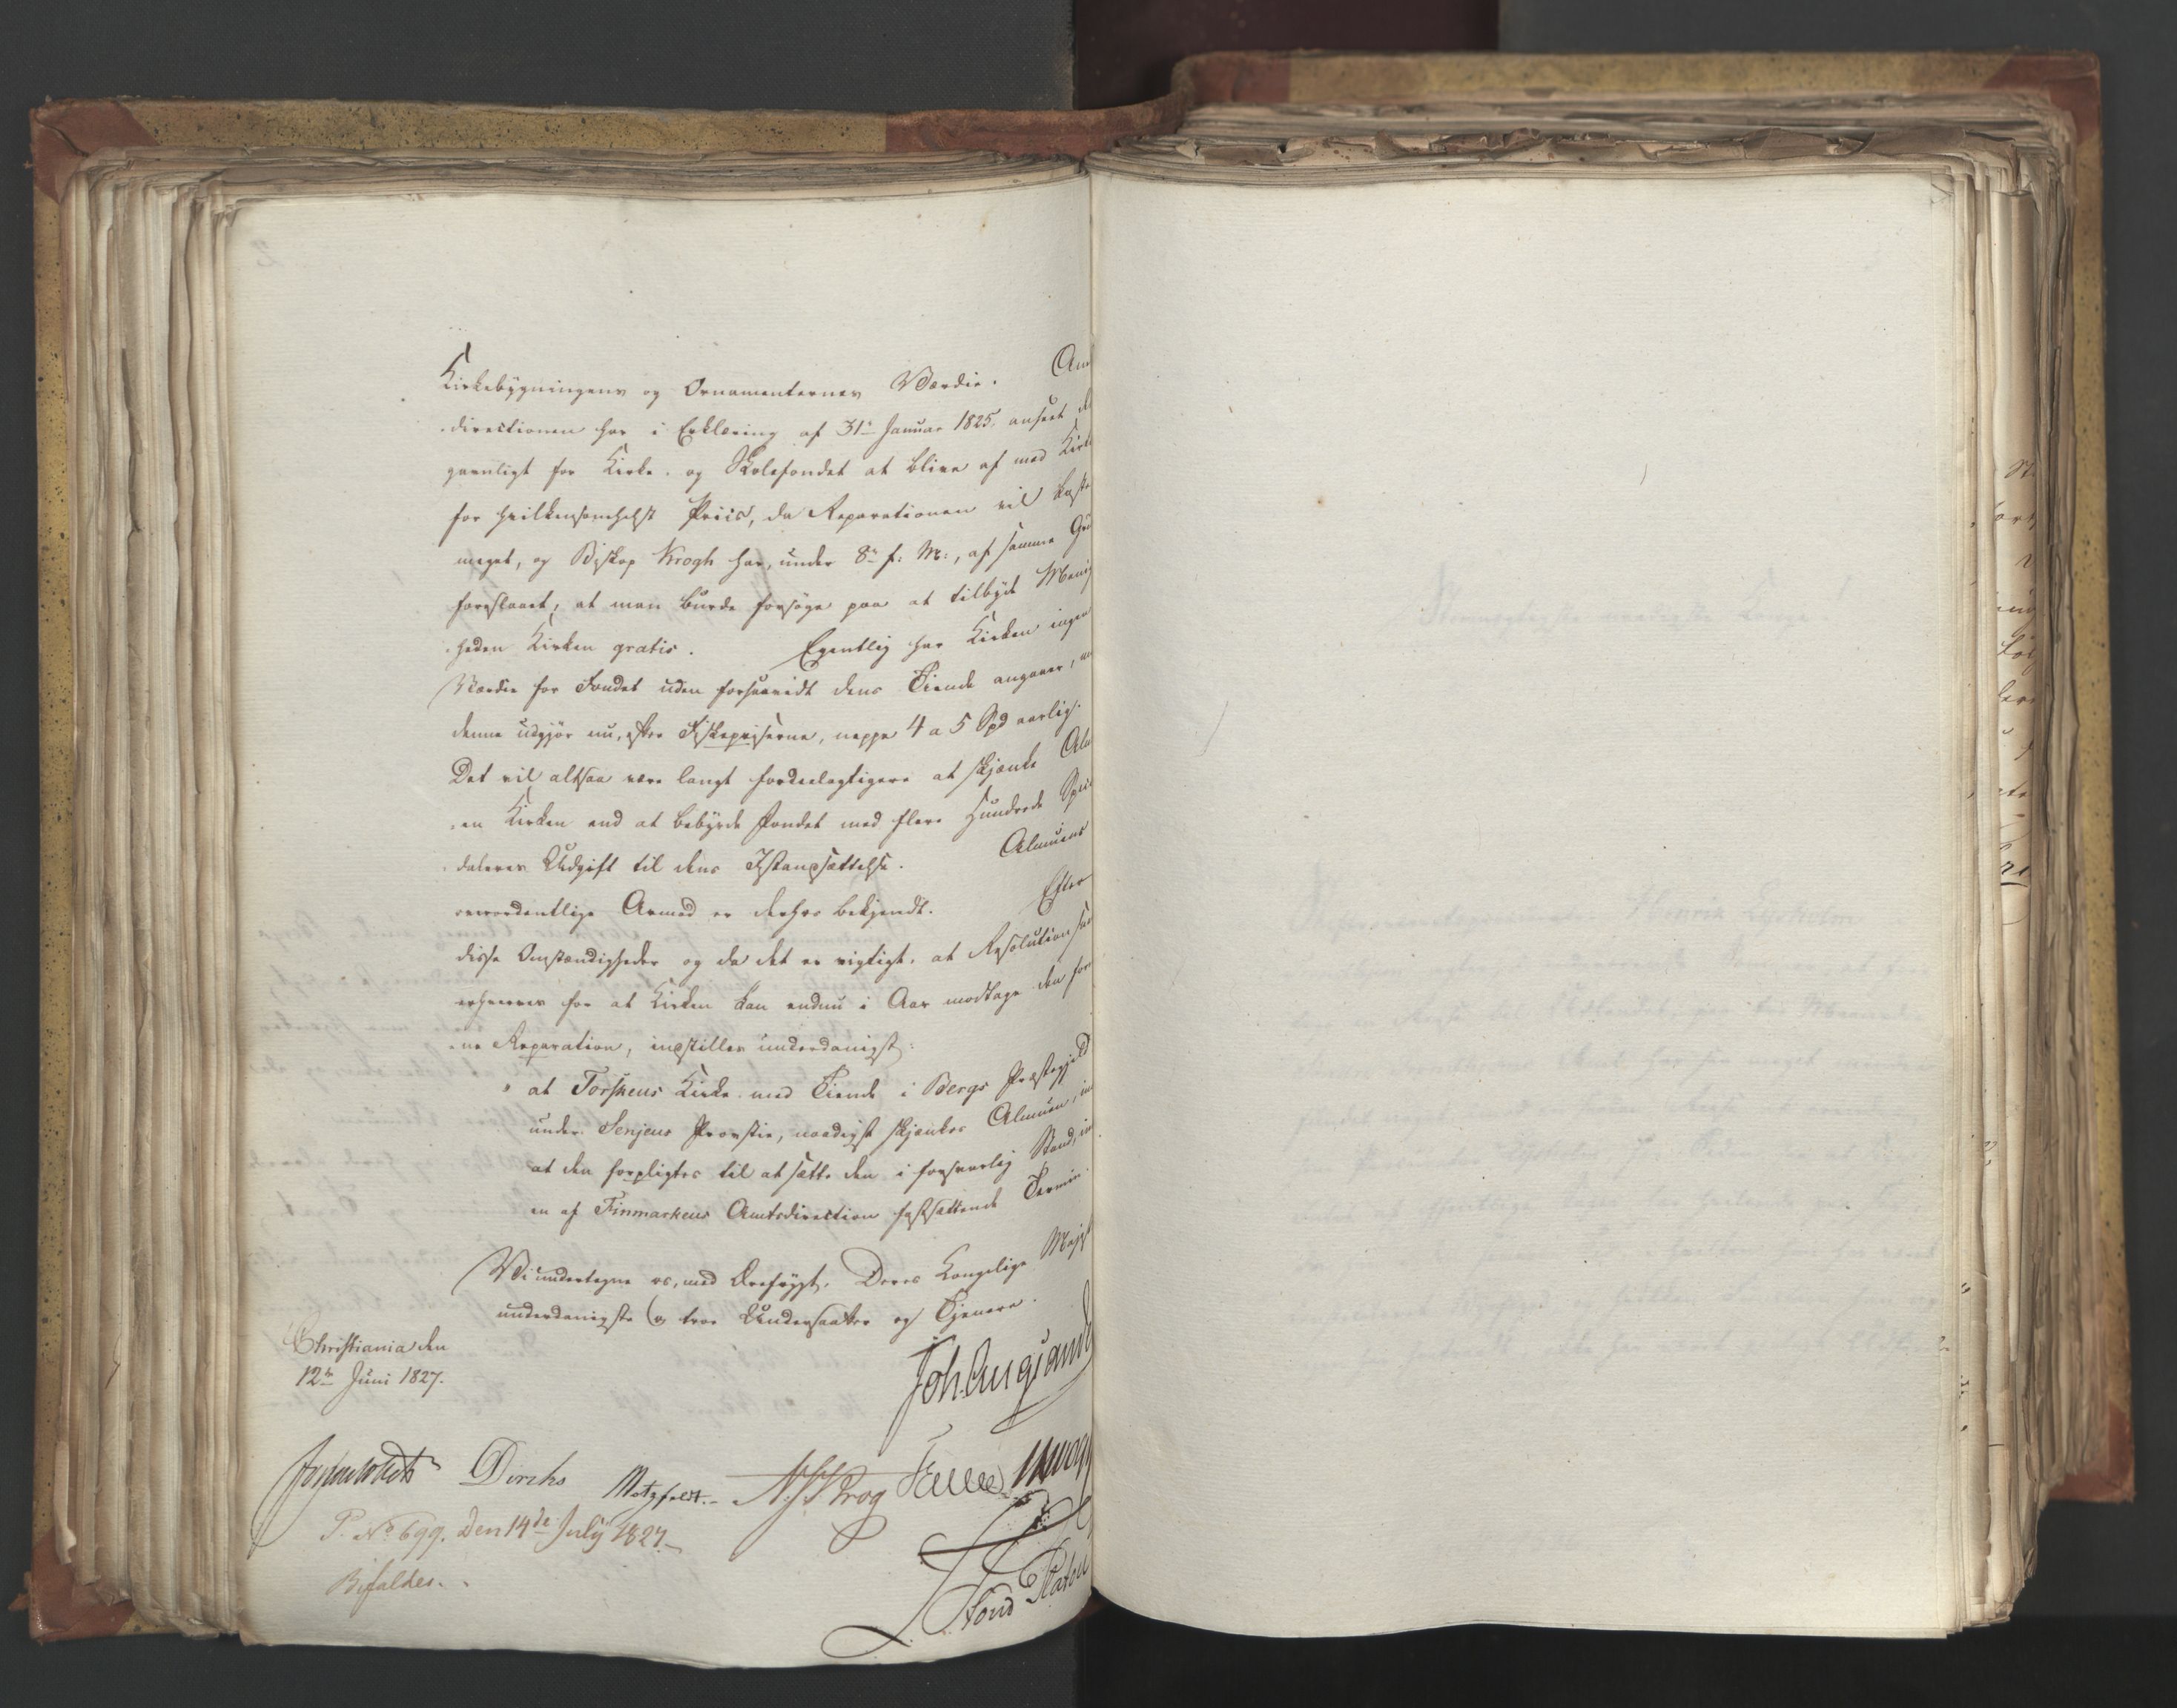 Kirkebygningens og Ornamenternes Værdie. Am
directionen har i Erklæring af 31te Januar 1825 anseet d
gavnligt for Kirke- og Skolefondet at blive af med Kirk
for hvilkensomhelst Priis, da Reparationen vil koste
meget, og Biskop Krogh har, under 8de f: M:, af samme Gru
foreslaaet, at man burde forsøge paa at tilbyde Menig
heden Kirken gratis. Egentlig har Kirken ingen
Værdie for Fondet uden forsaavidt dens Tiende angaaer,
denne udgjør nu, efter Fiskepriserne, neppe 4 a 5 Spd aarlig.
Det vil altsaa være langt fordeelagtigere at skjænke Alm
en Kirken end at bebyrde Fondet med flere Hundrede Spec
dalers Udgift til dens Istandsættelse. Almuens
overordentlige Armod er derhos bekjendt. Efter
disse Omstændigheder og da det er vigtigt, at Resolution
erhverves for at Kirken kan endnu i Aar modtage den for
ne Reparation, indstilles underdanigst:
" at Torskens Kirke med Tiende i Bergs Præstegjeld
under Senjens Provstie, naadigst skjænkes Almuen,
at den forpligtes til at sætte den i forsvarlig Stand,
en af Finmarkens Amtsdirection fastsættende Termin.
Vi undertegne os, med Ærefrygt, Deres Kongelige Majst
underdanigste og troe Undersaatter og Tjenere.
Christiania den
12te Juni 1827.
Joh. Aug. Sand
Diriks Motzfeldt. N. J. Krog
P. No 699. Den 14de July 1827.
Bifaldes.